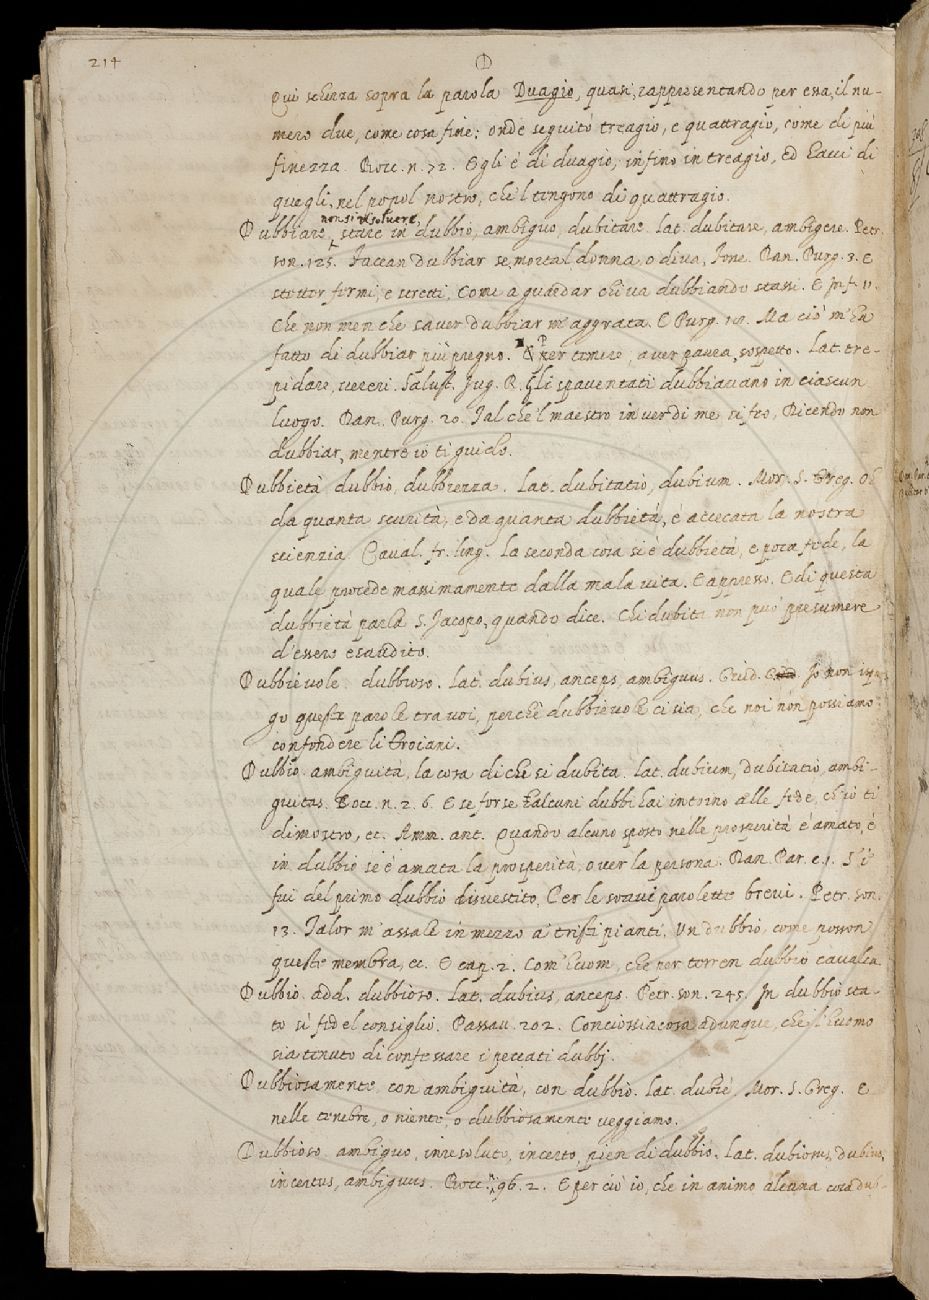 214
D
Qui scherza sopra la parola Duagio, quasi, rappresentando per essa, il nu-
mero due, come cosa fine: onde seguitò treagio, e quattragio, come di più
finezza. Bocc. n. 72. Egli è di duagio, infino in treagio, ed hacci di
quegli, nel popol nostro, che 'l tengono di quattragio.
non si risolvere,
Dubbiare, stare in dubbio, ambiguo, dubitare. Lat. dubitare, ambigere. Petr.
son. 125. Facean dubbiar se mortal donna, o diva, Fone. Dan. Purg. 3. E
stetter fermi, e stretti, Come a guardar chi va dubbiando stassi. E Inf. 11.
Che non men che saver dubbiar m'aggrata. E Purg. Ma ciò m'ha
fatto di dubbiar più pregno. ¶ per temere, aver paura, sospetto. Lat. tre-
pidare, vereri. Salust. Jug. R. Gli spaventati dubbiavano in ciascun
luogo. Dan. Purg. 20. Tal che 'l maestro inver di me si feo, Dicendo non
dubbiar, mentre io ti guido.
Dubbietà dubbio, dubbiezza. Lat. dubitatio, dubium. Mor. S. Greg. Oh
da quanta scurità, e da quanta dubbietà, è accecata la nostra
scienzia. Caval. fr. ling. La seconda cosa si è dubbietà, e poca fede, la
quale procede massimamente dalla mala vita. E appresso. E di questa
dubbietà parla S. Jacopo, quando dice. Chi dubita non può presumere
d'essere esaudito.
Dubbievole. dubbioso. Lat. dubius, anceps, ambiguus. Guid. Io non
go queste parole tra voi, perchè dubbievole ci sia, che noi non possiamo
confondere li Troiani.
Dubbio. ambiguità, la cosa di che si dubita. Lat. dubium, dubitatio, ambi-
guitas. Bocc. n. 2. 6. E se forse alcuni dubbi hai intorno alle fede, ch'io ti
dimostro, ec. Amm. ant. Quando alcuno sposto nelle prosperità è amato, è
in dubbio se è amata la prosperità, o ver la persona. Dan. Par. c. 1. S' i'
fui del primo dubbio disvestito, Per le soavi parolette brevi. Petr. son.
13. Talor m'assale in mezzo a' tristi pianti, Un dubbio, come posson
queste membra, ec. E cap. 2. Com'huom, che per terren dubbio cavalca.
Dubbio. add. dubbioso. Lat. dubius, anceps. Petr. son. 245. In dubbio sta-
to sì fedel consiglio. Passav. 202. Conciossiacosa adunque, che l'huomo
sia tenuto di confessare i peccati dubbj.
Dubbiosamente, con ambiguità, con dubbio. Lat. dubiè. Mor. S. Greg. E
nelle tenebre, o niente, o dubbiosamente veggiamo.
Dubbioso. ambiguo, inresoluto, incerto, pien di dubbio. Lat. dubiosus, dubius,
incertus, ambiguus. Bocc. n. 96. 2. E per ciò io, che in animo alcuna cosa dub-